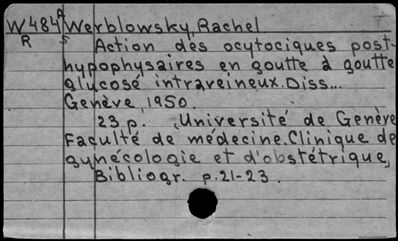 W484A Werblowsky, Rachel
R S Action des ocytociques post-
hypophysaires en goutte à goutte
glucosé intraveineux. Diss...
Genève, 1950.
23 p. (Université de Genève
Faculté de médecine. Clinique de
gynécologie et d'obstétrique,
Bibliogr. p. 21-23.